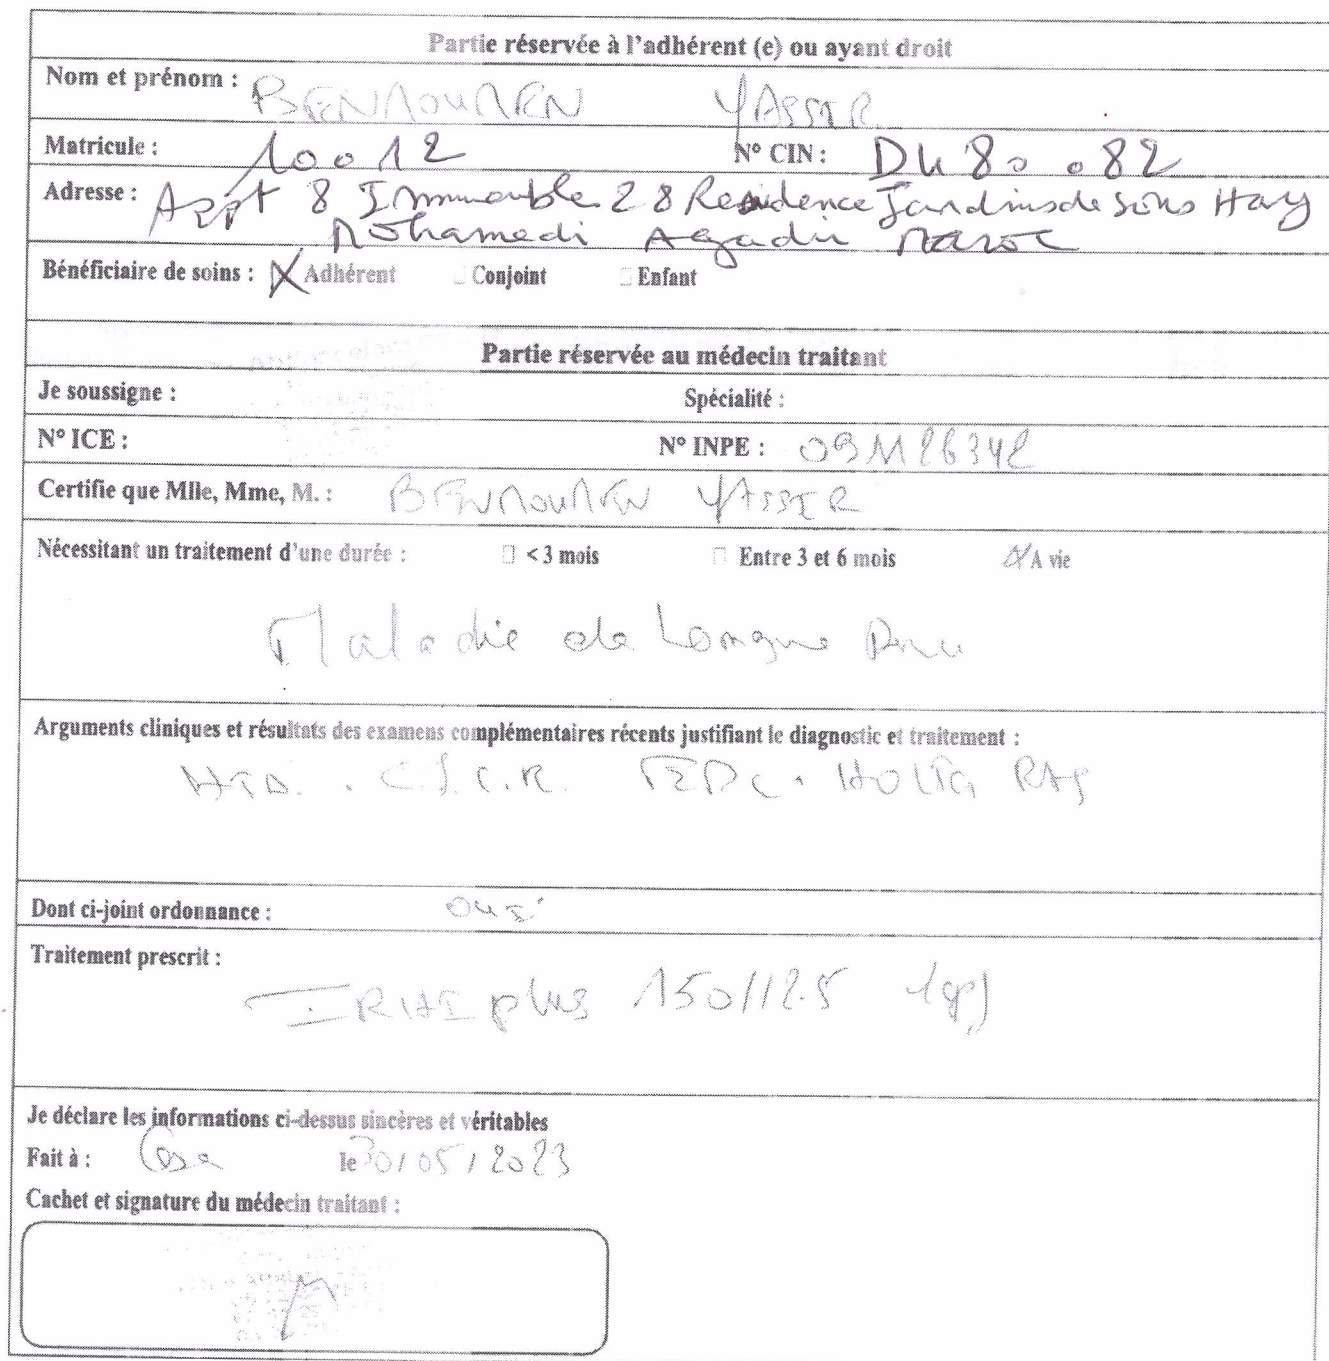 Partie réservée à l'adhérent (e) ou ayant droit
Nom et prénom : BENMOUMEN YASSIR
Matricule : 10012 N° CIN : 
Adresse : Appt 8 Immeuble 28 Residence Jardins de Hay
Mohamedi Agadir Maroc
Bénéficiaire de soins : Adhérent Conjoint Enfant
Partie réservée au médecin traitant
Je soussigne : Spécialité :
N° ICE : N° INPE :
Certifie que Mlle, Mme, M. : BENMOUMEN YASSIR
Nécessitant un traitement d'une durée : < 3 mois Entre 3 et 6 mois A vie
Maladie de Longue
Arguments cliniques et résultats des examens complémentaires récents justifiant le diagnostic et traitement :
Dont ci-joint ordonnance : oui
Traitement prescrit :
plus 150/12.5
Je déclare les informations ci-dessus sincères et véritables
Fait à : Casa le 30/05/2023
Cachet et signature du médecin traitant :